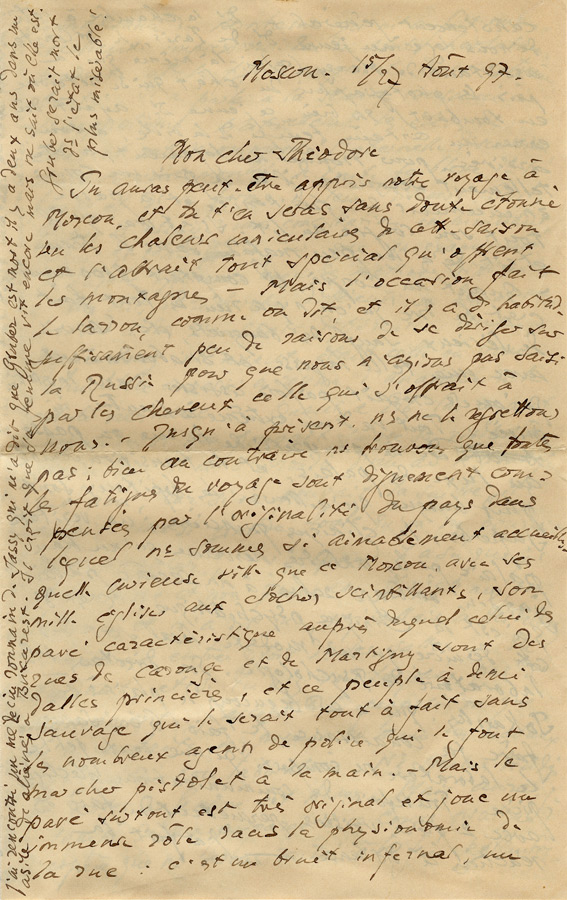 Moscou. 15/27 Août 97.
Mon cher Théodore
Tu auras peut-être appris notre voyage à
Moscou, et tu t'en seras sans doute étonné
vu les chaleurs caniculaires de cette saison
et l'attrait tout spécial qu'offrent
les montagnes — Mais l'occasion fait
le larron, comme on dit et il y a d'habitude
suffisamment peu de raisons de se diriger sur
la Russie pour que nous n'ayions pas saisi
par les cheveux celle qui s'offrait à
nous. — Jusqu'à présent, ns ne le regrettons
pas; bien au contraire ns trouvons que toutes
les fatigues du voyage sont dignement com-
pensées par l'originalité du pays dans
lequel ns sommes si aimablement accueillis.
quelle curieuse ville que ce Moscou, avec ses
mille églises aux clochers scintillants, son
pavé caractéristique auprès duquel celui des
rues de Carouge et de Martigny sont des
dalles princières, et ce peuple à demi
sauvage qui le serait tout à fait sans
les nombreux agents de police qui le font
marcher pistolet à la main. — Mais le
pavé surtout est très original et joue un
immense rôle dans la physionomie de
la rue : c'est un bruit infernal, un
J'ai rencontré un médecin roumain de Jassy qui m'a dit que Gruber est mort il y a deux ans dans un
asile d'aliénés à Bukarest. Il croit que sa femme vit encore mais ne sait où elle est.
Gruber serait mort
ds l'état le
plus misérable!